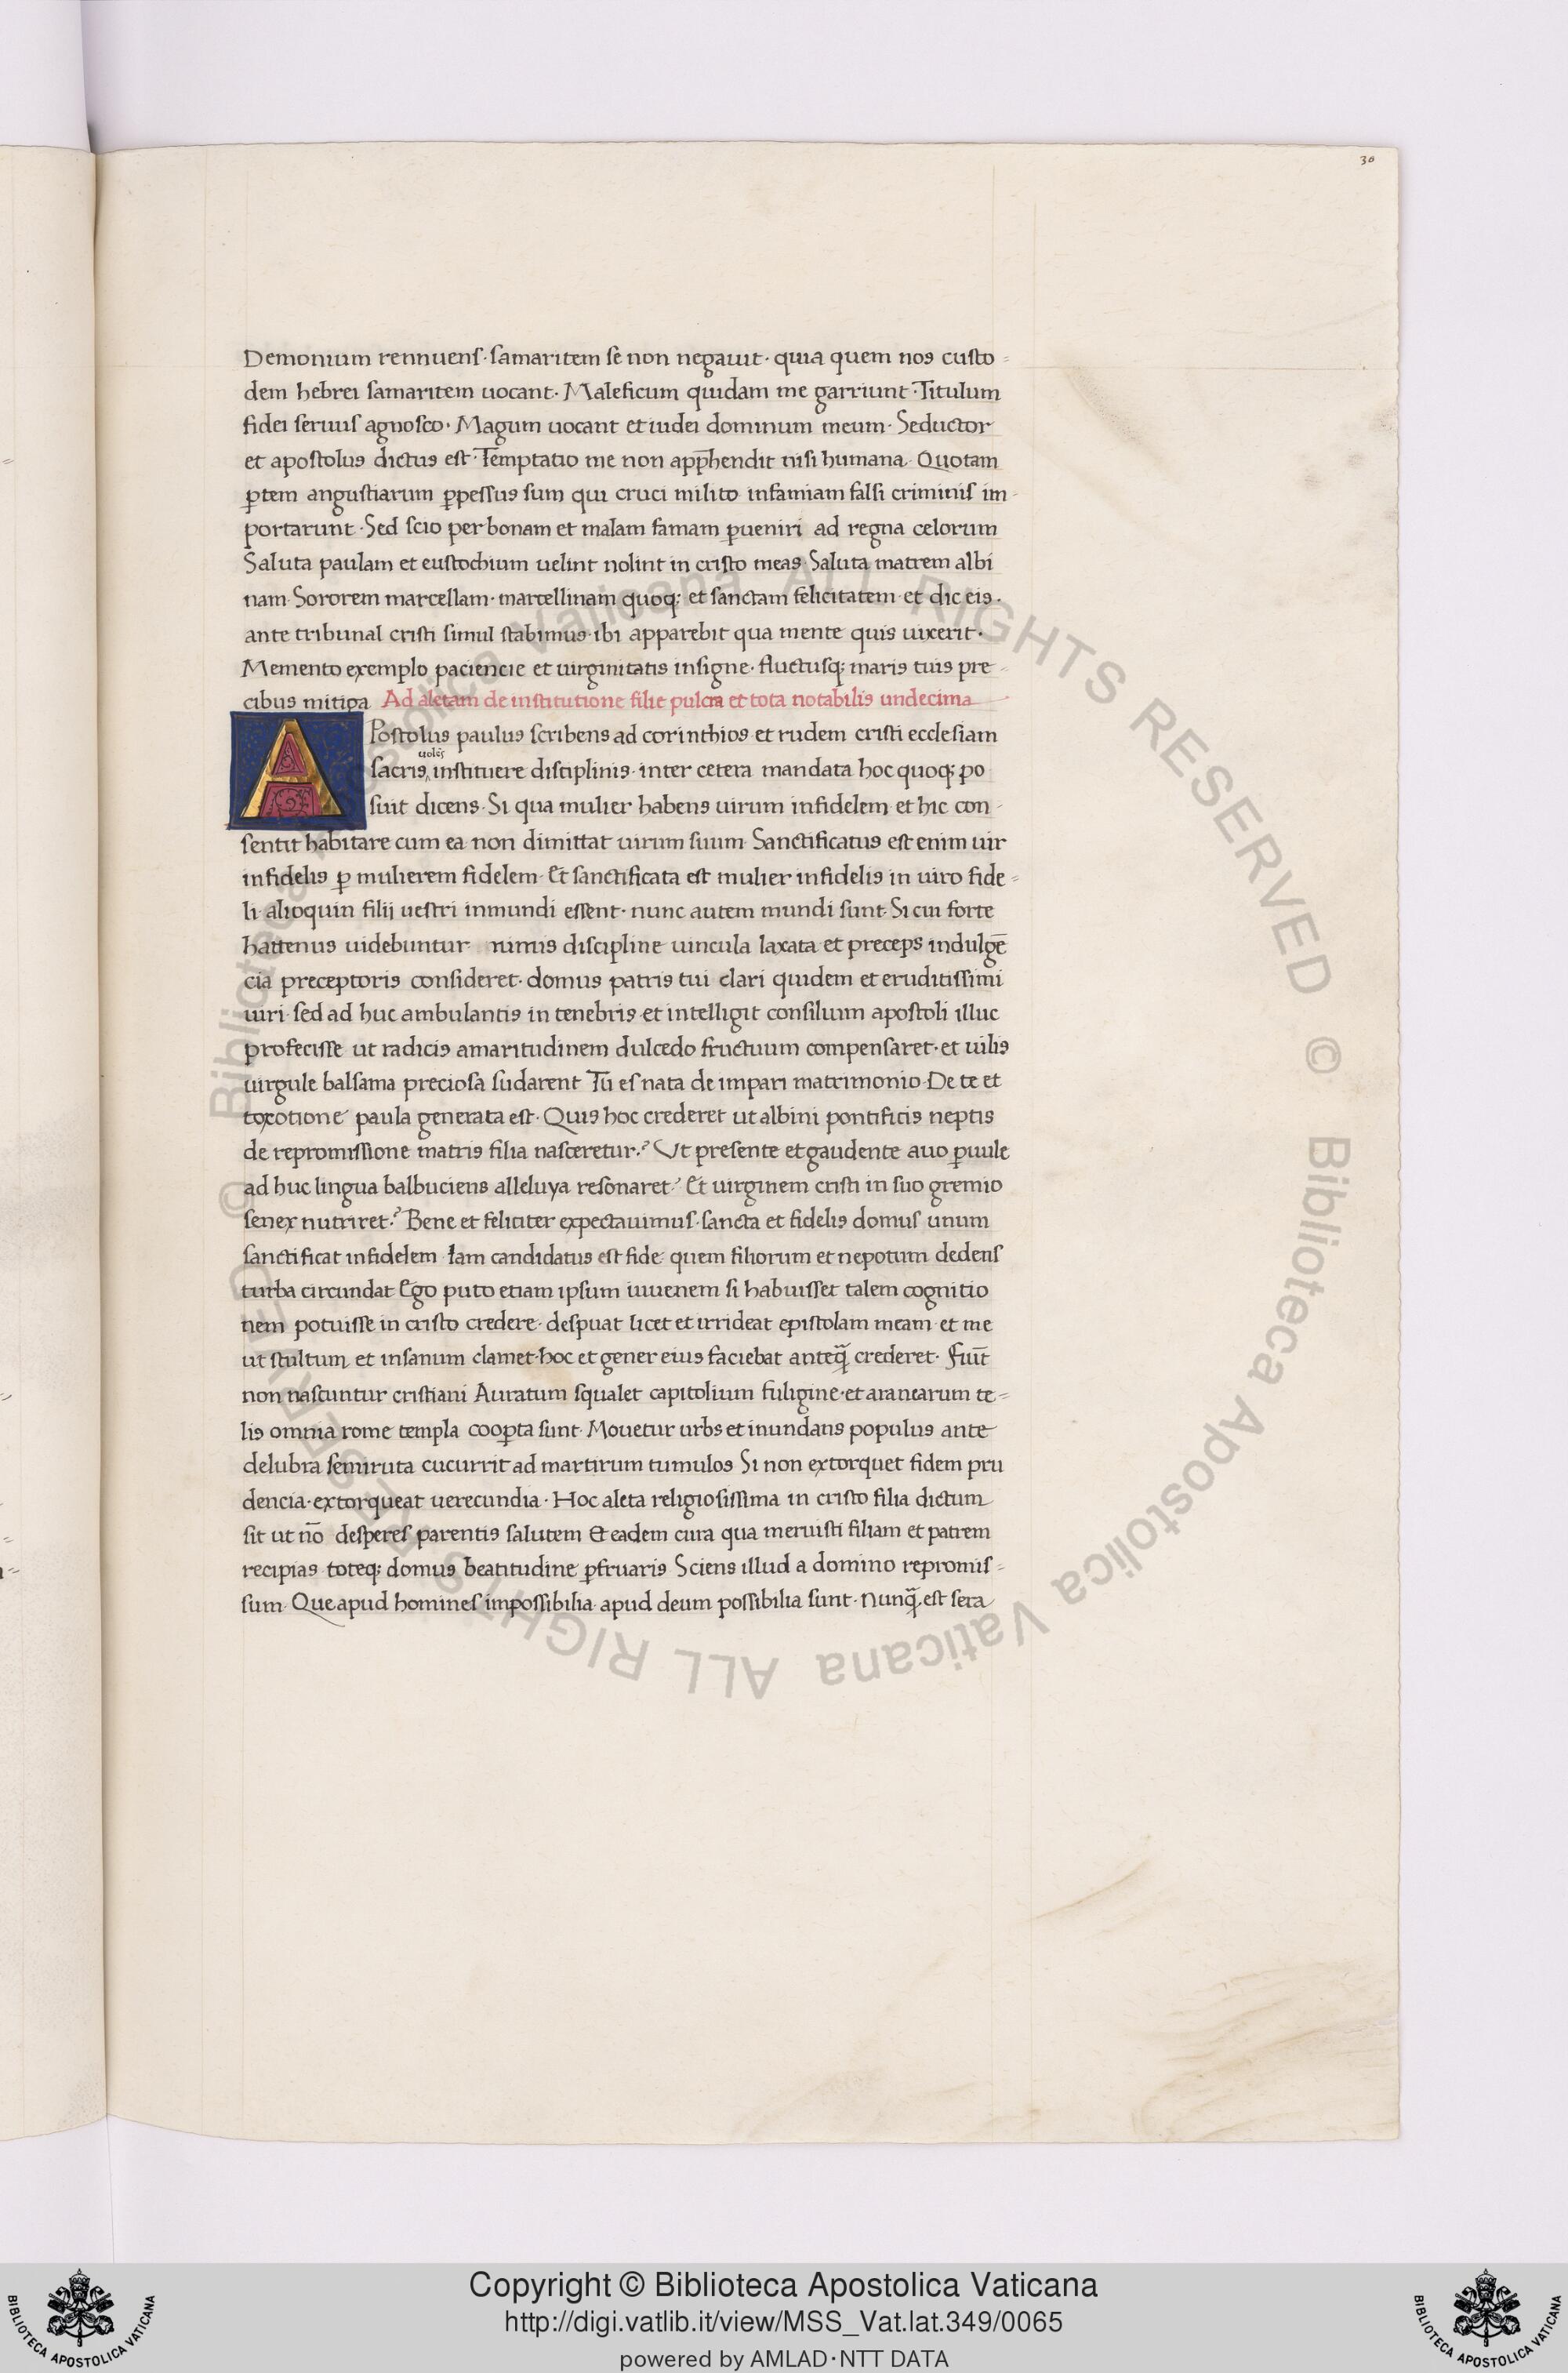 30
Demonium rennuens· samaritem se non negauit· quia quem nos custo-
dem hebrei samaritem uocant· Maleficum quidam me garriunt· Titulum
fidei seruus agnosco· Magum uocant et iudei dominum meum· Seductor
et apostolus dictus est· Temptatio me non app̄hendit nisi humana· Quotam
ꝑtem angustiarum ꝑpessus sum qui cruci milito infamiam falsi criminis im-
portarunt· Sed scio per bonam et malam famam ꝑueniri ad regna celorum
Saluta paulam et eustochium uelint nolint in cristo meas· Saluta matrem albi
nam· Sororem marcellam· marcellinam quoq; et sanctam felicitatem· et dic eis·
ante tribunal cristi simul stabimus· ibi apparebit qua mente quis uixerit·
Memento exemplo paciencie et uirginitatis insigne· fluctusq; maris tuis pre-
cibus mitiga Ad aletam de institutione filie pulcra et tota notabilis undecima
APostolus paulus scribens ad corinthios et rudem cristi ecclesiam
uolēs
sacris instituere disciplinis· inter cetera mandata hoc quoq; po
suit dicens· Si qua mulier habens uirum infidelem et hic con-
sentit habitare cum ea non dimittat uirum suum· Sanctificatus est enim uir
infidelis ꝑ mulierem fidelem· Et sanctificata est mulier infidelis in uiro fide-
li· alioquin filij uestri inmundi essent· nunc autem mundi sunt· Si cui forte
hattenus uidebuntur nimis discipline uincula laxata et preceps indulgē
cia preceptoris consideret· domus patris tui clari quidem et eruditissimi
uiri· sed ad huc ambulantis in tenebris et intelligit consilium apostoli illuc
profecisse ut radicis amaritudinem dulcedo fructuum compensaret· et uilis
uirgule balsama preciosa sudarent Tu es nata de impari matrimonio· De te et
toxotione paula generata est· Quis hoc crederet ut albini pontificis neptis
de repromissione matris filia nasceretur? Ut presente et gaudente auo ꝑuule
ad huc lingua balbuciens alleluya resonaret? Et uirginem cristi in suo gremio
senex nutriret? Bene et feliciter expectauimus· sancta et fidelis domus unum
sanctificat infidelem· Iam candidatus est fide· quem filiorum et nepotum dedens
turba circundat Ego puto etiam ipsum iuuenem si habuisset talem cognitio
nem potuisse in cristo credere· despuat licet et irrideat epistolam meam et me
ut stultum et insanum clamet· hoc et gener eius faciebat anteq̃ crederet· Fiūt
non nascuntur cristiani Auratum squalet capitolium fuligine· et aranearum te-
lis omnia rome templa cooꝑta sunt· Mouetur urbs et inundans populus ante
delubra semiruta cucurrit ad martirum tumulos Si non extorquet fidem pru
dencia· extorqueat uerecundia· Hoc aleta religiosissima in cristo filia dictum
sit ut nō desperes parentis salutem Et eadem cura qua meruisti filiam et patrem
recipias toteq; domus beatitudine ꝑfruaris Sciens illud a domino repromis-
sum· Que apud homines impossibilia apud deum possibilia sunt· Nunq̃ est sera
Copyright © Biblioteca Apostolica Vaticana
http://digi.vatlib.it/view/MSS_Vat.lat.349/0065
powered by AMLAD·NTT DATA
BIBLIOTECA APOSTOLICA VATICANA
BIBLIOTECA APOSTOLICA VATICANA
© Biblioteca Apostolica Vaticana ALL RIGHTS RESERVED © Biblioteca Apostolica Vaticana ALL RIGHTS RESERVED